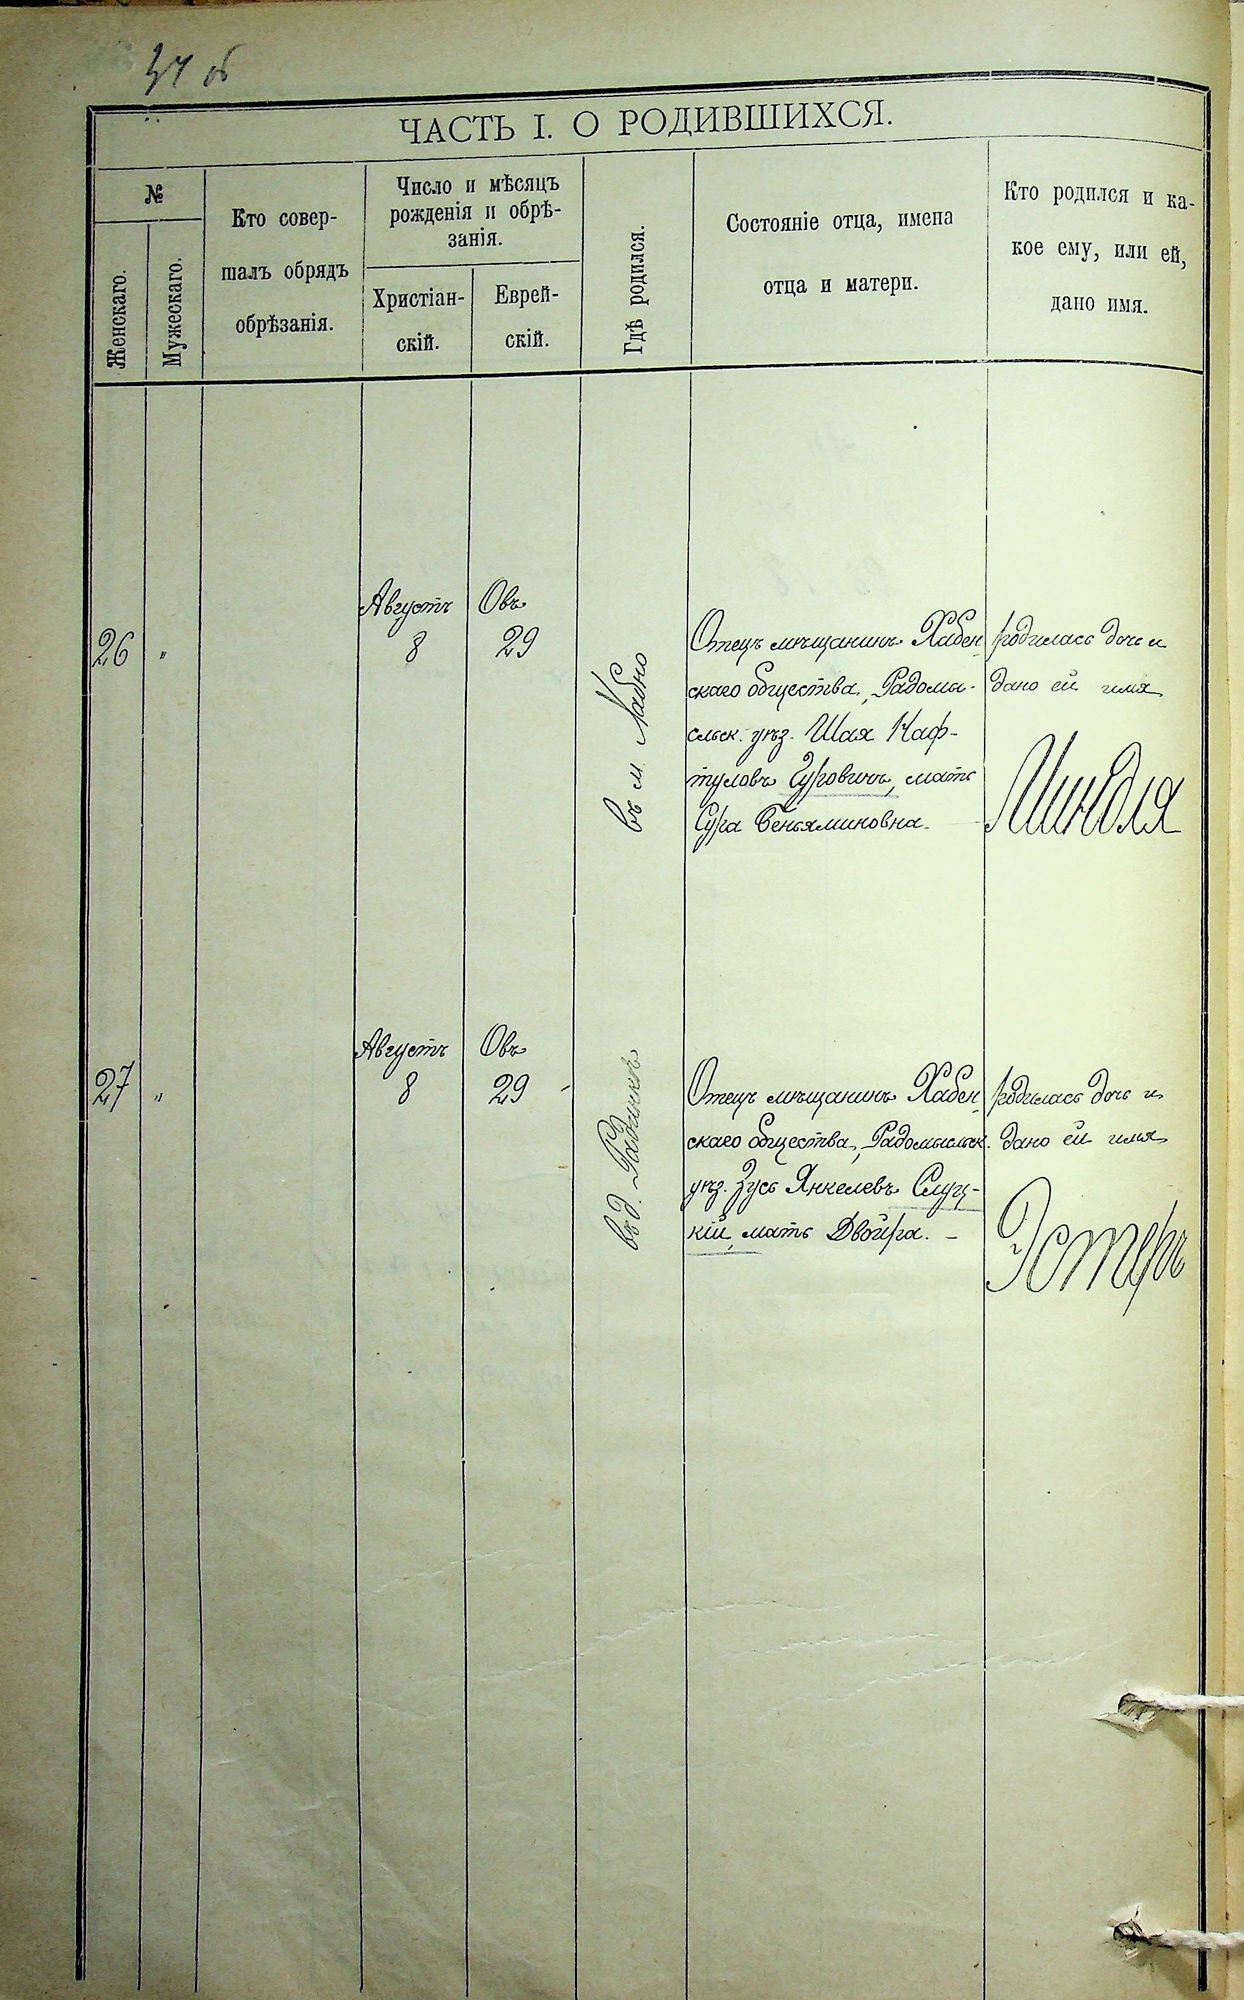 ЧАСТЬ I. О РОДИВШИХСЯ.
№
Женскаго.
Мужескаго.
Кто совер-
шалъ обрядъ
обрѣзанія.
Число и мѣсяцъ
рожденія и обрѣ-
занія.
Христіан-
скій.
Еврей-
скій.
Гдѣ родился.
Состояніе отца, имена
отца и матери.
Кто родился и ка-
кое ему, или ей,
дано имя.
26 "
Августъ
8
Овъ
29
въ м. Хабно
Отецъ мѣщанинъ Хабен
скаго общества, Радомы-
сльск. уѣз. Шая Наф-
туловъ Гуровичъ, мать
Сура Беньяминовна.
родилась дочь и
дано ей имя
Миндля
27 "
Августъ
8
Овъ
29
въ д.
Отецъ мѣщанинъ Хабен
скаго общества, Радомысльск.
уѣз. Зусь Янкелевъ Слуц-
кій, мать Двойра. —
родилась дочь и
дано ей имя
Эстеръ